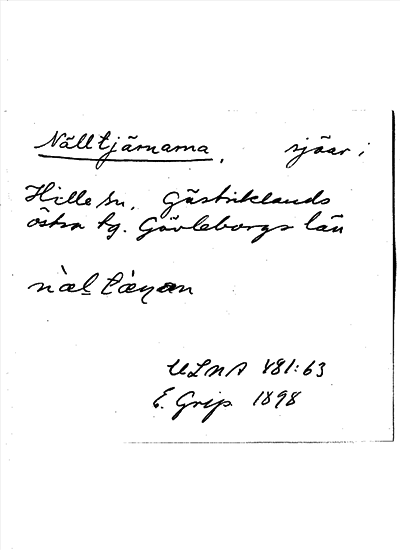 Nälltjärnarna, sjöar i
Hille sn, Gästriklands
östra tg. Gävleborgs län
ULMA 481:63
E. Grip 1898